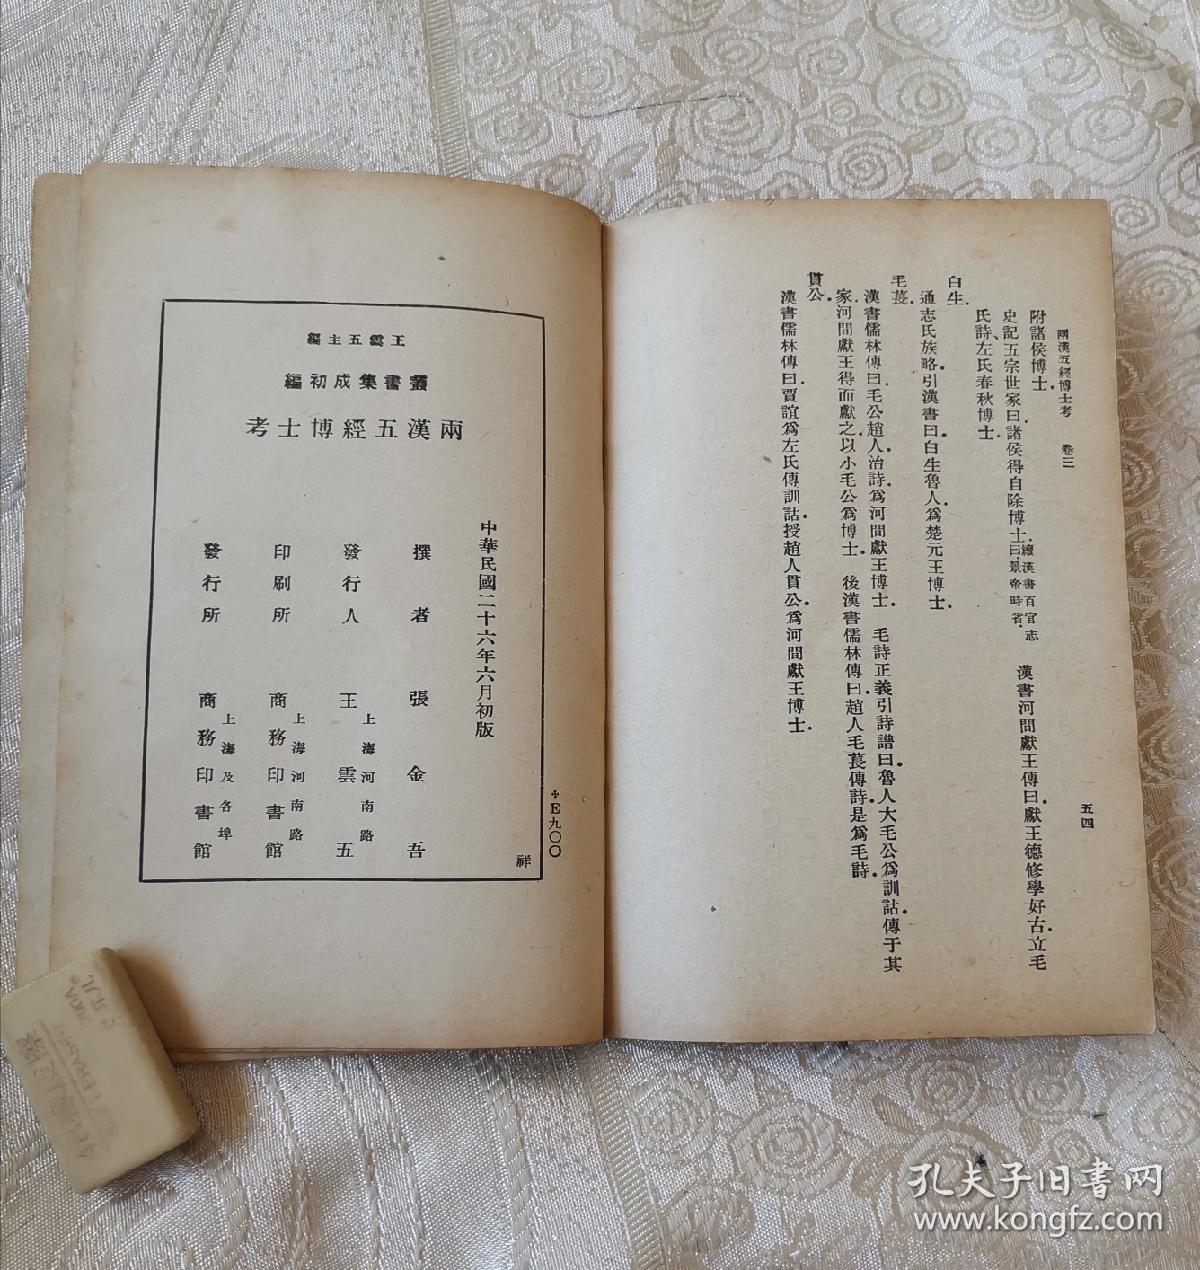 兩漢五經博士考　卷三
五四
附諸侯博士.
史記五宗世家曰.諸侯得自除博士.續漢書百官志曰.景帝時省.　漢書河間獻王傳曰.獻王德修學好古.立毛
氏詩、左氏春秋博士.
白生.
通志氏族略.引漢書曰.白生魯人.爲楚元王博士.
毛萇.
漢書儒林傳曰.毛公趙人.治詩.爲河間獻王博士.　毛詩正義引詩譜曰.魯人大毛公爲訓詁.傳于其
家.河間獻王得而獻之.以小毛公爲博士.　後漢書儒林傳曰.趙人毛萇傳詩.是爲毛詩.
貫公.
漢書儒林傳曰.賈誼爲左氏傳訓詁.授趙人貫公.爲河間獻王博士.
王雲五主編
叢書集成初編
兩漢五經博士考
中華民國二十六年六月初版
撰者　張金吾
發行人　王雲五
上海河南路
印刷所　商務印書館
上海河南路
發行所　商務印書館
上海及各埠
＊E九〇〇
祥
孔夫子旧书网
www.kongfz.com